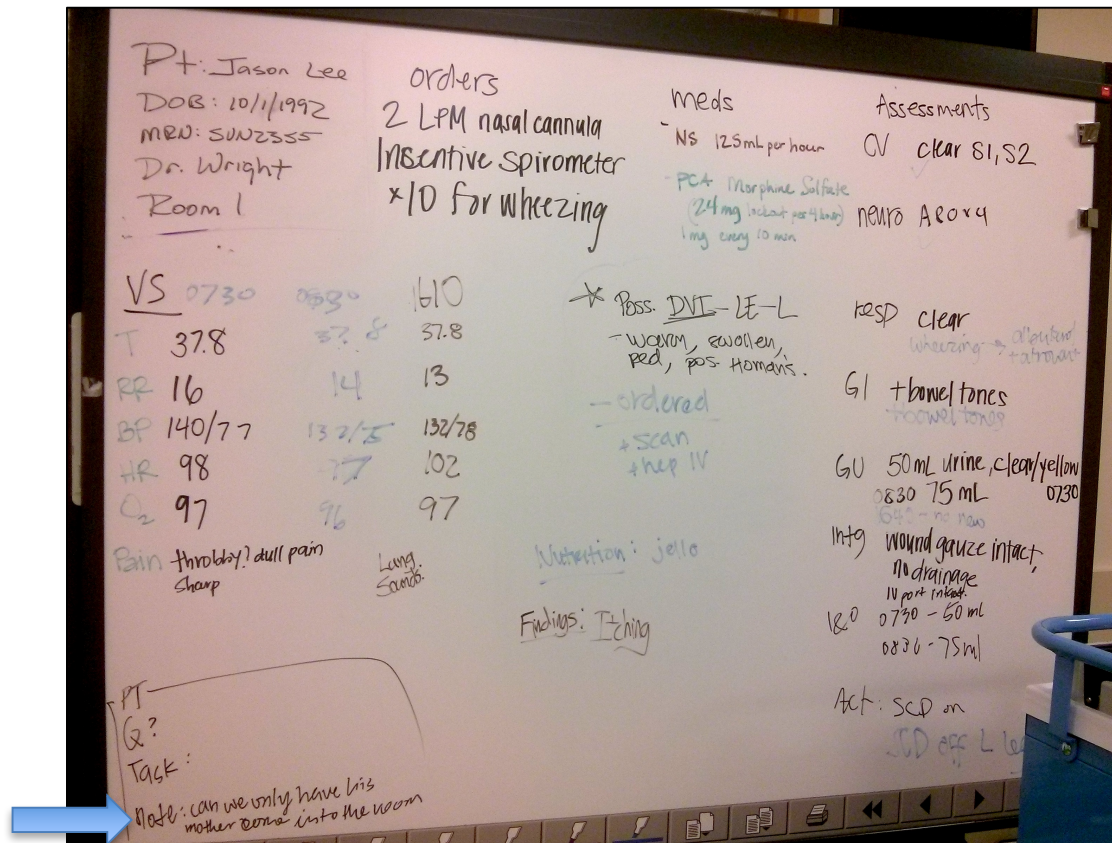 Pt: Jason Lee
DOB: 10/1/1992
MRN: SUN2355
Dr. Wright
Room 1
orders
2 LPM nasal cannula
Insentive spirometer
*10 for wheezing
meds
- NS 125mL per hour
- PCA Morphine Sulfate
(24mg lockout per 4 hour)
1mg every 10 min
Assessments
CV clear S1, S2
neuro A&Ox4
resp clear
wheezing → albuterol
+ atrovent
GI +bowel tones
+bowel tones
GU 50mL urine, clear/yellow
0830 75mL 0730
no new
Intg wound gauze intact,
no drainage
IV port intact.
I&O 0730 - 50 ml
0830 - 75ml
Act: SCD on
SCD off L leg
VS 0730 0830 1610
T 37.8 37.8 37.8
RR 16 14 13
BP 140/77 132/75 132/78
HR 98 77 102
O2 97 96 97
Pain throbby? dull pain
sharp
Lung
Sounds:
* Poss. DVT - LE - L
- warm, swollen,
red, pos. Homan's.
- ordered
+ scan
+ hep IV
Nutrition: jello
Findings: Itching
PT
Q?
Task:
Note: can we only have his
mother come into the room